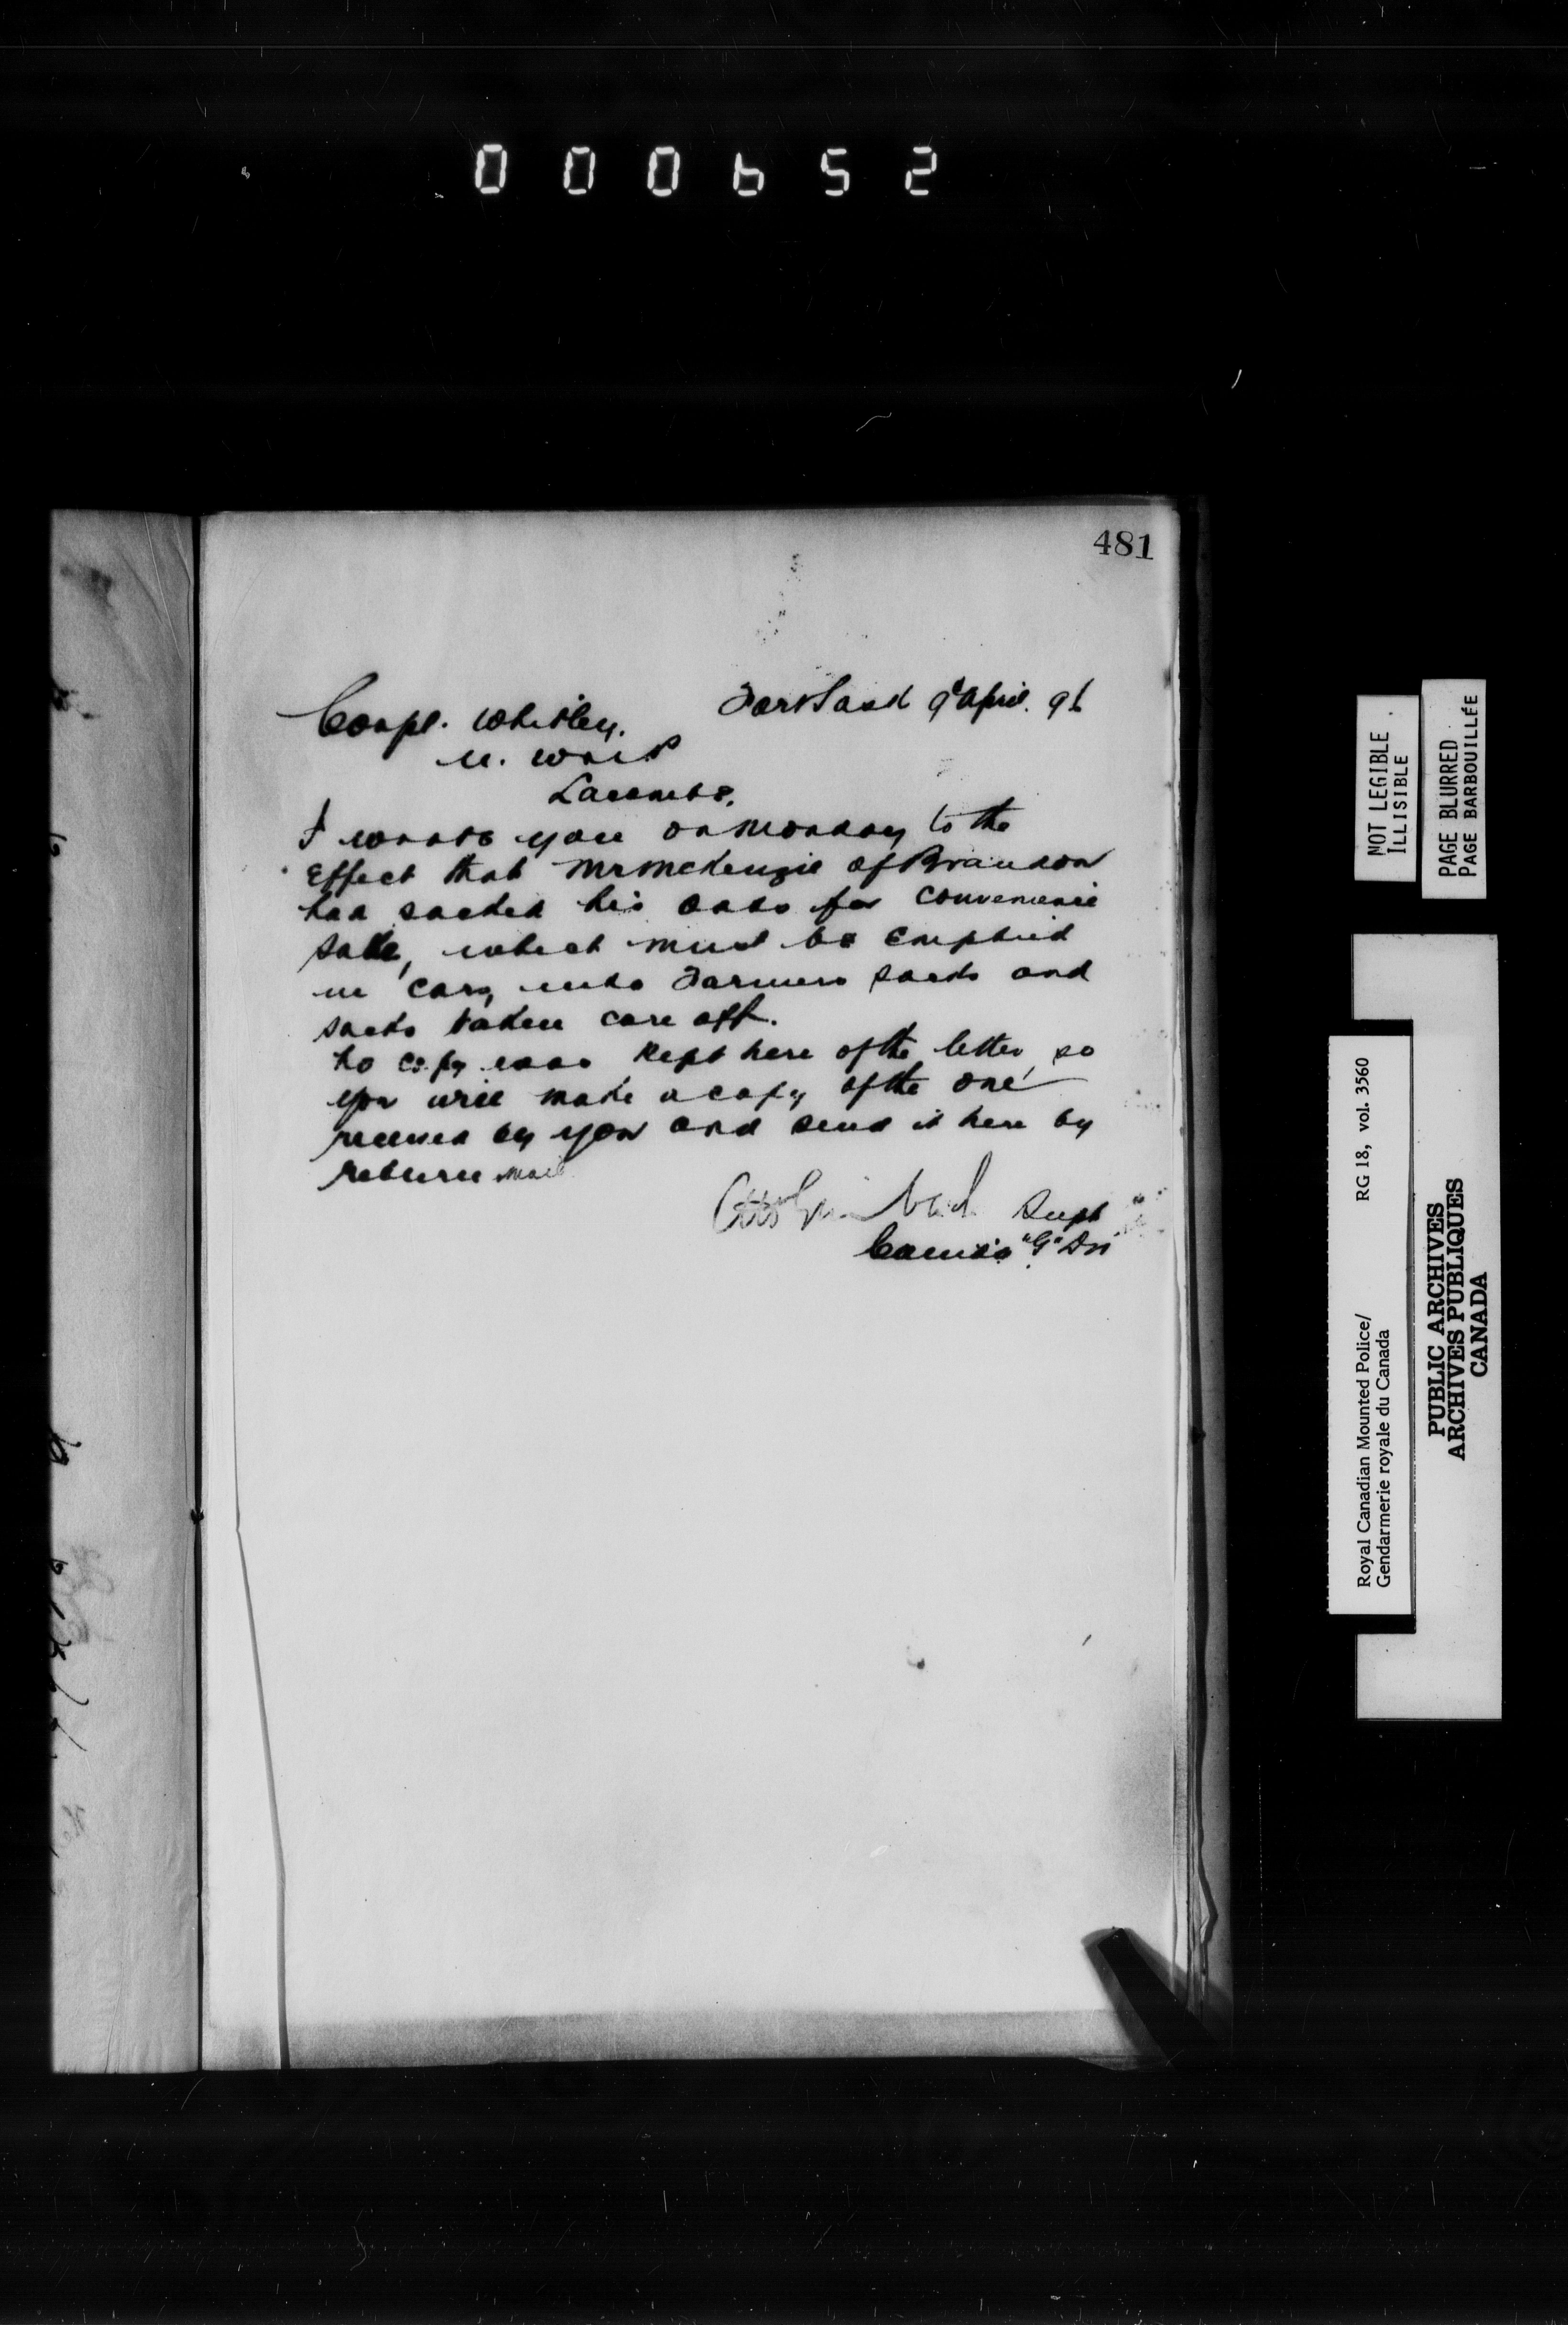 000652
481
Fort Sask 9 April. 96
Corpl. Whitley.
N. W. M. P
Lacombe.
I wrote you on Monday to the
Effect that Mr McKenzie of Brandon
had sacked his oats for convenience
sake, which must be emptied
in cars, into Farmers sacks and
sacks taken care off.
No copy was kept here of the letter, so
you will make a copy of the one
received by you and send it here by
return mail
Supt
"G" Div
NOT LEGIBLE
ILLISIBLE
PAGE BLURRED
PAGE BARBOUILLÉE
Royal Canadian Mounted Police/
Gendarmerie royale du Canada
RG 18, vol. 3560
PUBLIC ARCHIVES
ARCHIVES PUBLIQUES
CANADA